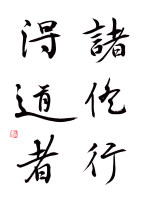 諸修行
得道者